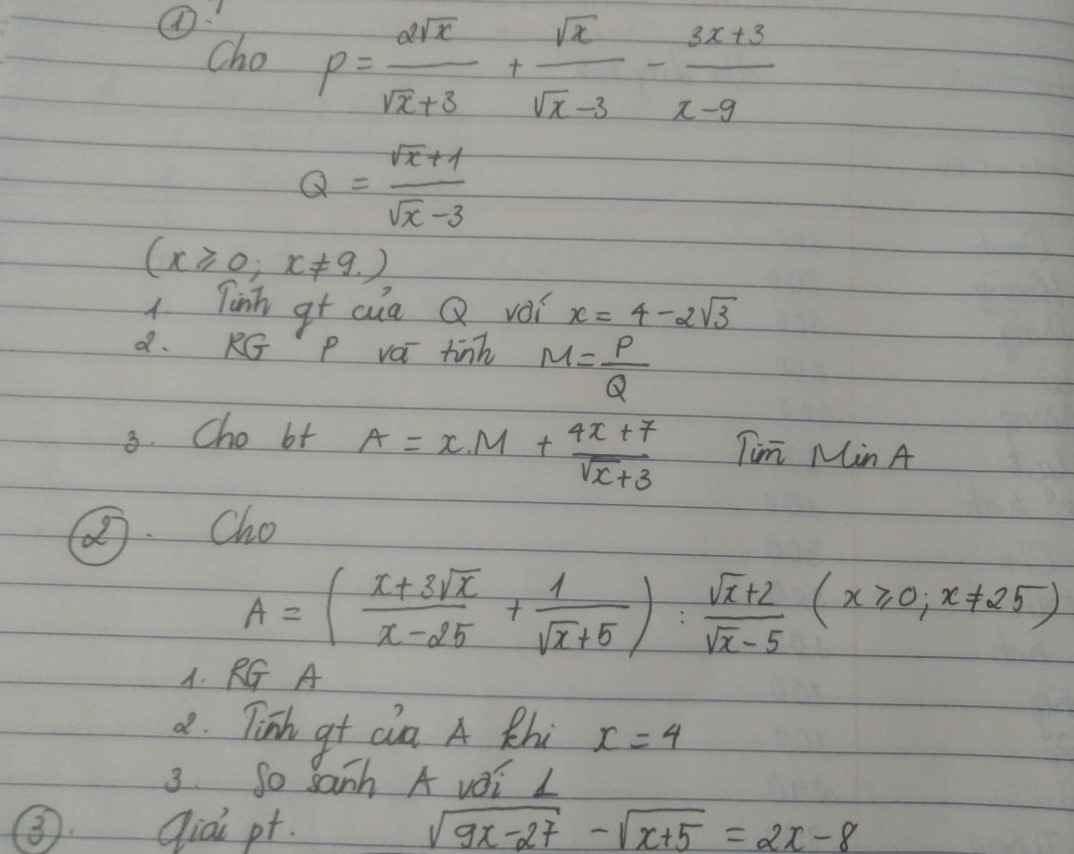 ①.
Cho P = 2√x / (√x + 3) + √x / (√x - 3) - (3x + 3) / (x - 9)
Q = (√x + 1) / (√x - 3)
(x ⩾ 0; x ≠ 9.)
1 Tính gt của Q với x = 4 - 2√3
2. RG P và tính M = P / Q
3. Cho bt A = x.M + (4x + 7) / (√x + 3) Tìm Min A
②. Cho
A = ( (x + 3√x) / (x - 25) + 1 / (√x + 5) ) : (√x + 2) / (√x - 5) (x ⩾ 0; x ≠ 25)
1. RG A
2. Tính gt của A khi x = 4
3. So sánh A với 1
③. Giải pt. √(9x - 27) - √(x + 5) = 2x - 8